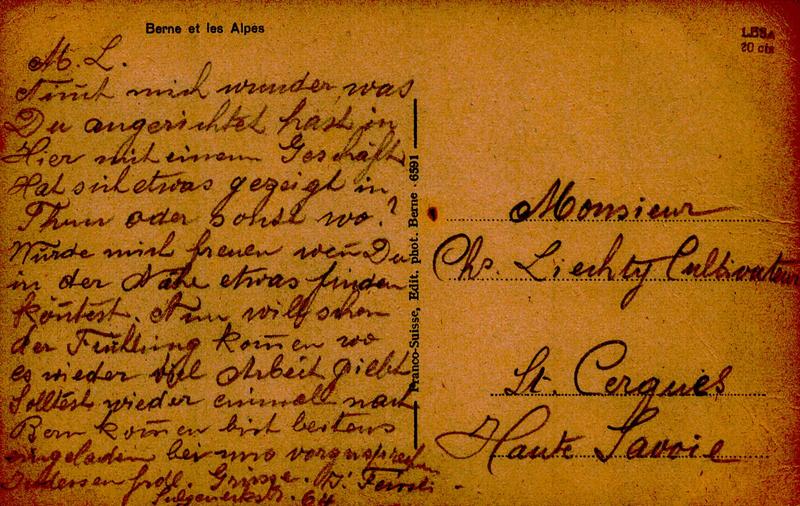 Berne et les Alpes
M. L.
Nimt mich wunder, was
Du angerichtet hast in
Hier mit einem Geschäft
Hat sich etwas gezeigt in
Thun oder sonst wo?
Würde mich freuen wen̄ Du
in der Nähe etwas finden
kön̄test. Nun will schon
der Frühling kom̄en wo
es wieder viel Arbeit giebt
Solltest wieder einmall nach
Bern kom̄en bist bestens
eingeladen bei uns vorzusprechen
Indessen frdl. Grüsse.
Sulgeneckstr. 64
Franco-Suisse, Edit. phot. Berne · 6591
20 cts
Monsieur
Chs. Liechty Cultivateur
St. Cergues
Haute Savoie